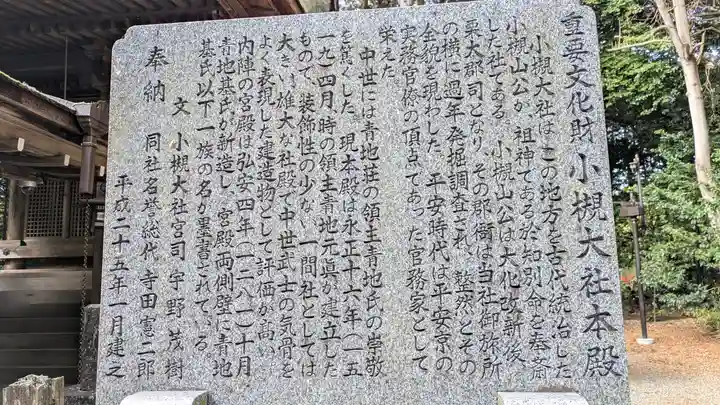 重要文化財小槻大社本殿
小槻大社は、この地方を古代統治した
小槻山公が、祖神である於知別命を奉斎
した社である。小槻山公は大化改新後、
栗太郡司となり、その郡衙は当社御旅所
の横に過年発掘調査され、整然とその
全貌を現わした。平安時代は平安京の
実務官僚の頂点であった官務家として
栄えた。
中世には青地荘の領主青地氏の崇敬
を篤くした。現本殿は永正十六年(一五
一九)四月時の領主青地元眞が建立した
もので、装飾性の少ない一間社としては
大きい雄大な社殿で中世武士の気骨を
よく表現した建造物として評価が高い。
内陣の宮殿は弘安四年(一二八一)十月
青地基氏が新造し、宮殿両側壁に青地
基氏以下一族の名が墨書されている。
文 小槻大社宮司 宇野茂樹
奉納 同社名誉総代 寺田憲二郎
平成二十五年一月建之